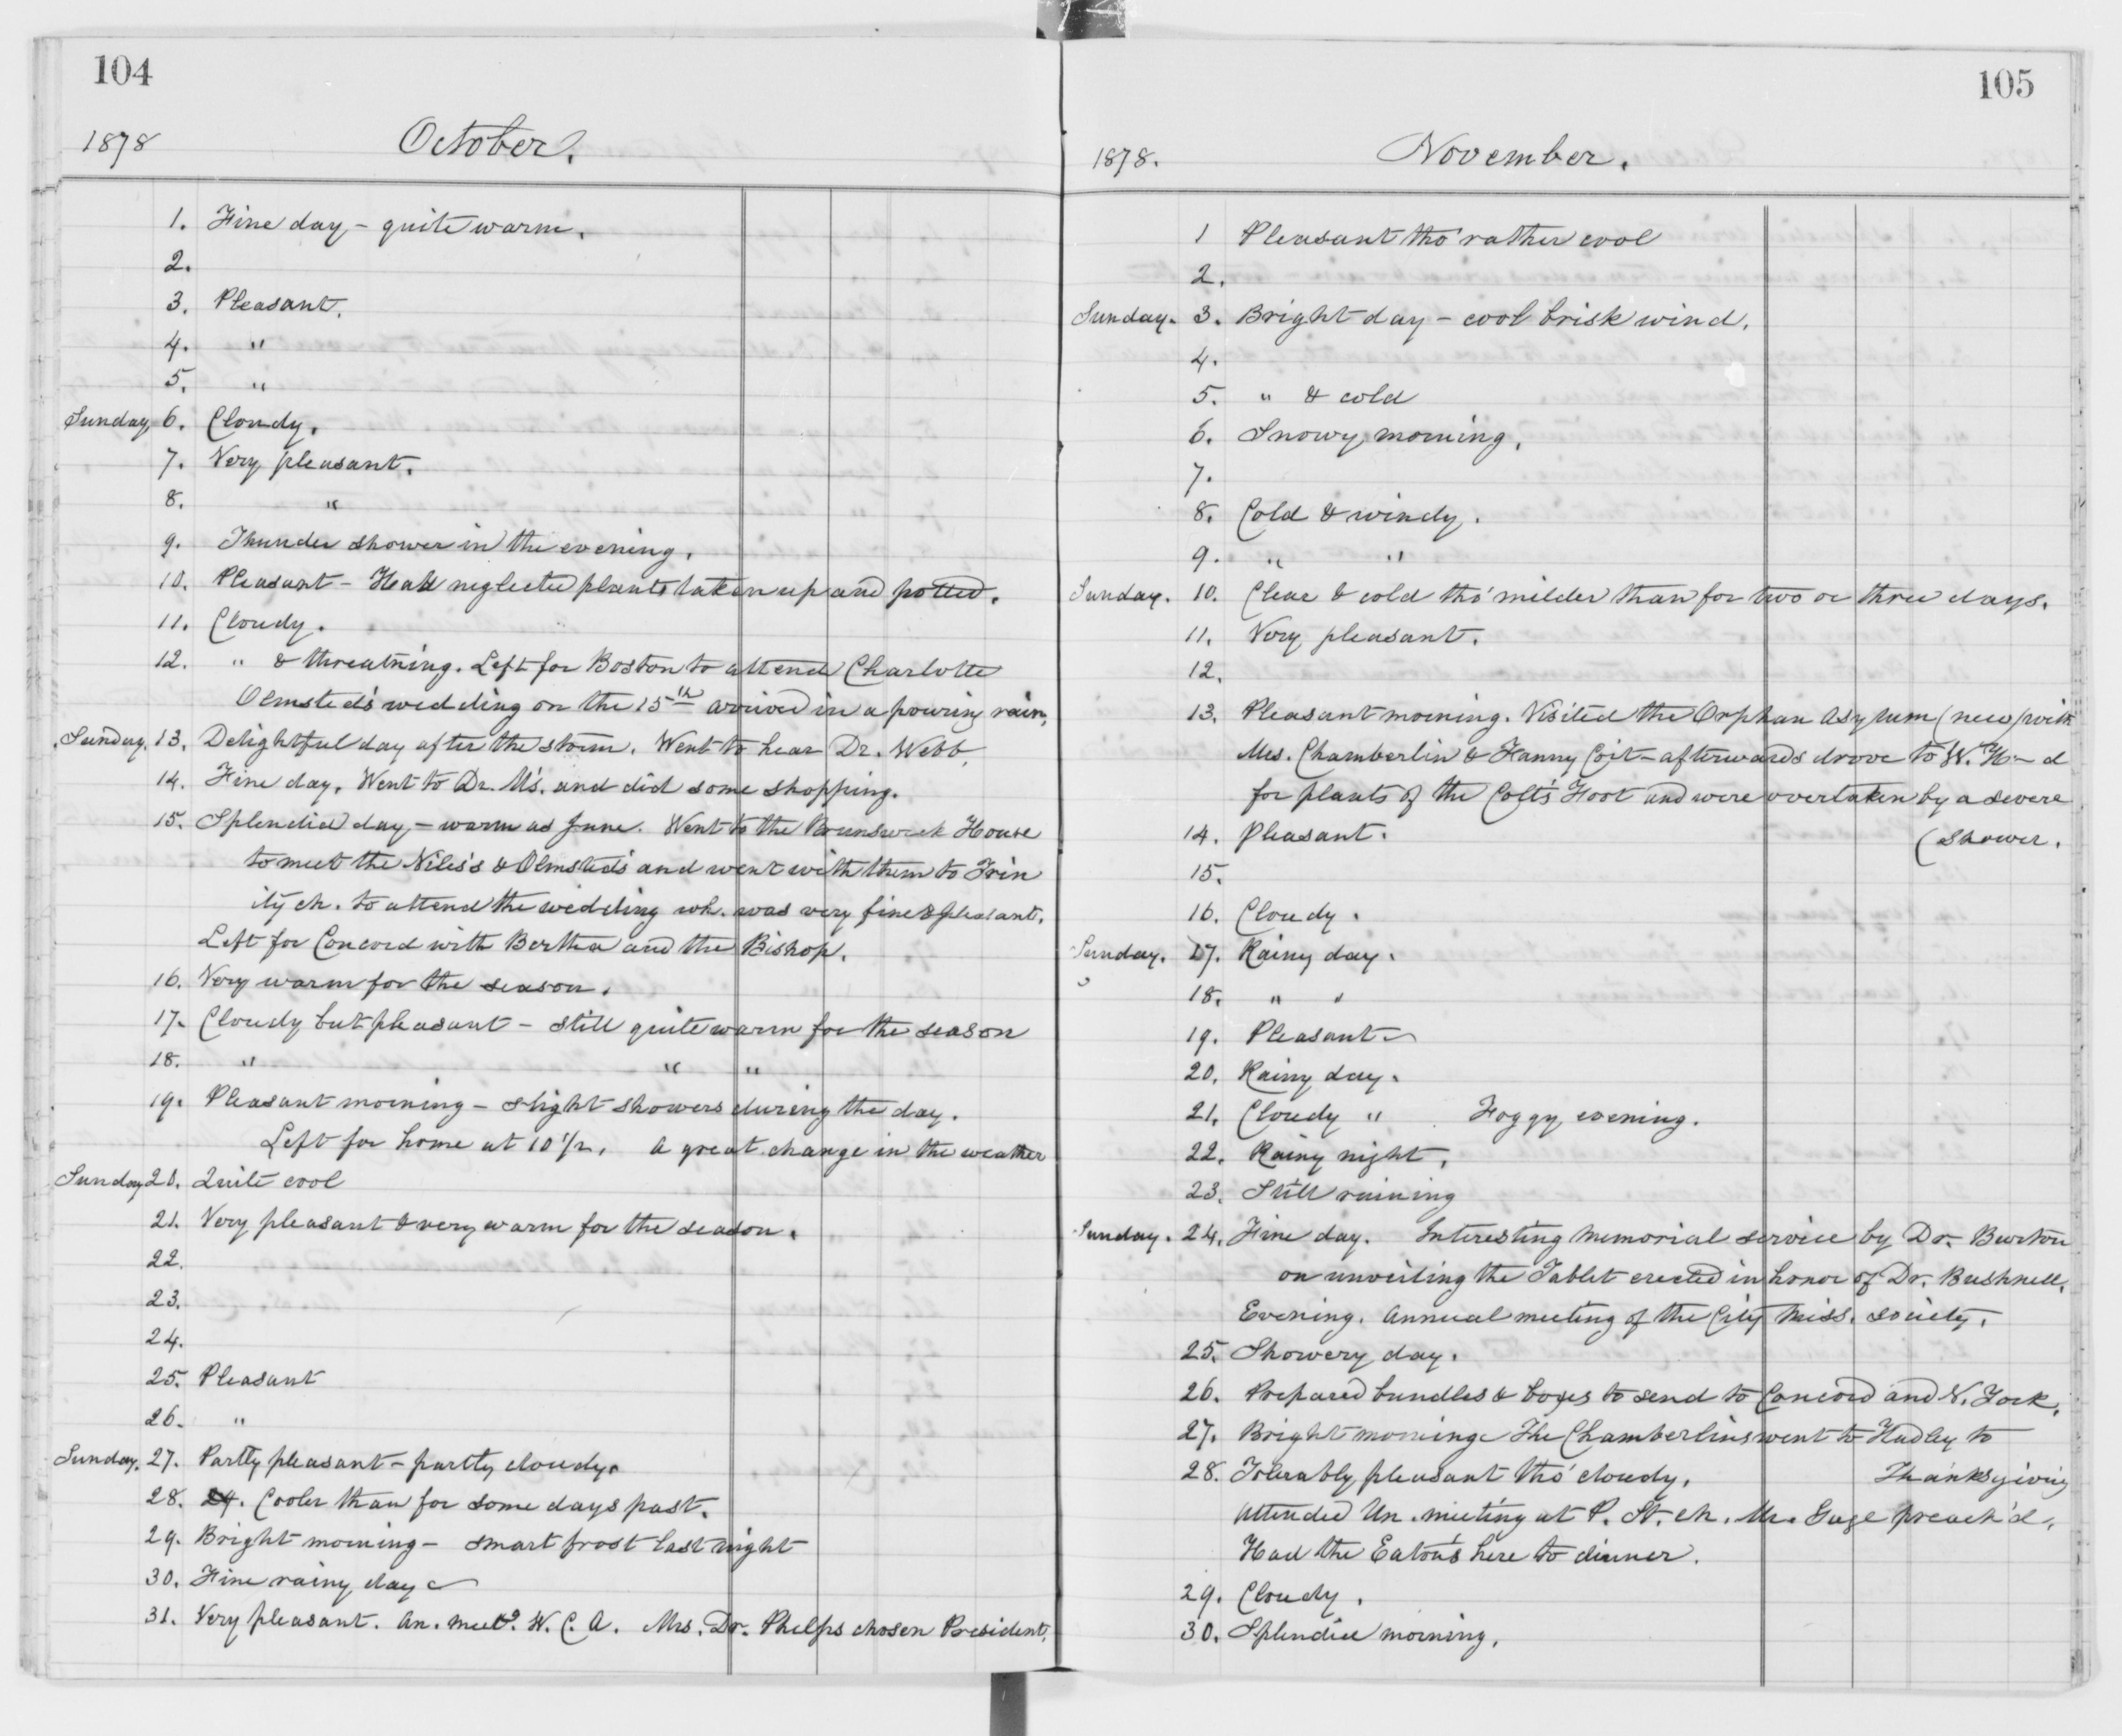 104
1878 October.
1. Fine day - quite warm.
2.
3. Pleasant.
4. "
5. "
Sunday 6. Cloudy.
7. Very pleasant.
8. "
9. Thunder shower in the evening.
10. Pleasant - Had neglected plants taken up and potted.
11. Cloudy.
12. " & threatning. Left for Boston to attend Charlotte
Olmsted's wedding on the 15th arrived in a pouring rain,
Sunday. 13. Delightful day after the storm. Went to hear Dr. Webb.
14. Fine day. Went to Dr. M's. and did some shopping.
15. Splendid day - warm as June. Went to the Brunswick House
to meet the Niles's & Olmsted's and went with them to Trin
ity ch. to attend the wedding wh. was very fine & pleasant.
Left for Concord with Bertha and the Bishop.
16. Very warm for the season.
17. Cloudy but pleasant - still quite warm for the season
18. " " "
19. Pleasant morning - slight showers during the day.
Left for home at 10 1/2. A great change in the weather
Sunday 20. Quite cool
21. Very pleasant & very warm for the season.
22.
23.
24.
25. Pleasant
26. "
Sunday. 27. Partly pleasant - partly cloudy.
28. Cooler than for some days past.
29. Bright morning - smart frost last night
30. Fine rainy day
31. Very pleasant. An. meetg. W. C. A. Mrs. Dr. Phelps chosen President.
105
1878. November.
1 Pleasant tho' rather cool
2.
Sunday. 3. Bright day - cool brisk wind.
4.
5. " & cold
6. Snowy morning.
7.
8. Cold & windy.
9. " "
Sunday. 10. Clear & cold tho' milder than for two or three days.
11. Very pleasant.
12.
13. Pleasant morning. Visited the Orphan Asylum (new) with
Mrs. Chamberlin & Fanny Coit - afterwards drove to W. H-d
for plants of the Colt's Foot and were overtaken by a severe
14. Pleasant. (shower.
15.
16. Cloudy.
Sunday. 17. Rainy day.
18. " "
19. Pleasant
20. Rainy day.
21. Cloudy " Foggy evening.
22. Rainy night.
23. Still raining
Sunday. 24. Fine day. Interesting memorial service by Dr. Burton
on unveiling the Tablet erected in honor of Dr. Bushnell.
Evening. Annual meeting of the City Miss. Society.
25. Showery day.
26. Prepared bundles & boxes to send to Concord and N. York.
27. Bright morning The Chamberlins went to Hadley to
28. Tolerably pleasant tho' cloudy. Thanksgiving
Attended Un. meeting at P. St. ch. Mr. Gage preach'd.
Had the Eaton's here to dinner.
29. Cloudy.
30. Splendid morning.